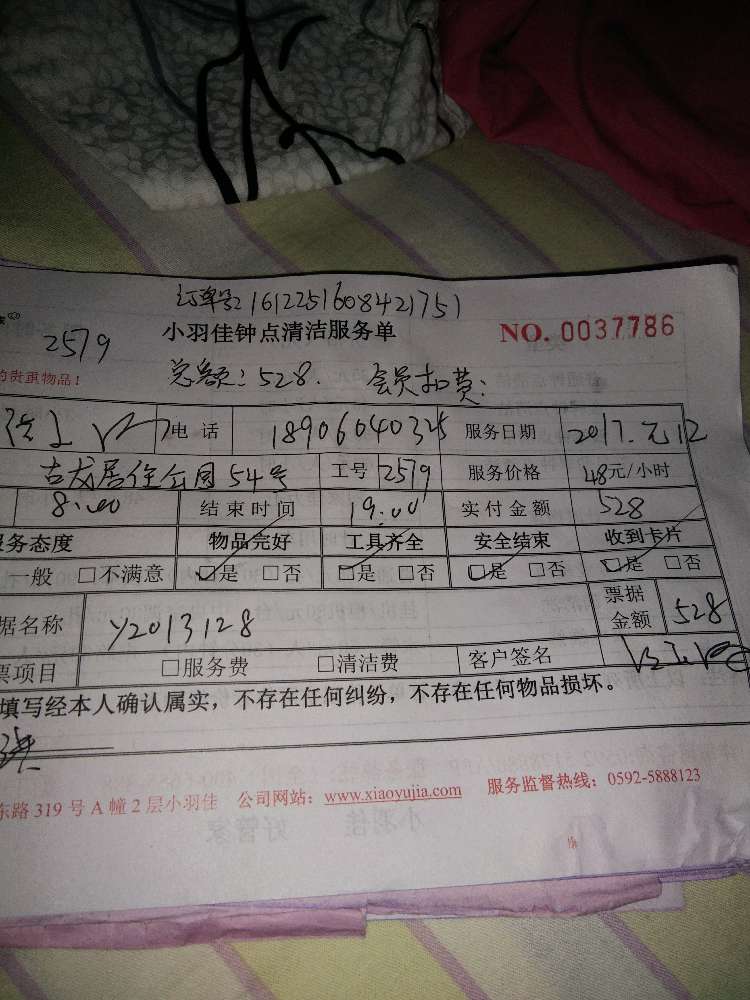 订单号:1612251608421751
2579 小羽佳钟点清洁服务单 NO. 0037786
的贵重物品！ 总额：528. 会员扣费：
电 话 18906040325 服务日期 2017.元12
古龙居住公园54号 工号 2579 服务价格 48元/小时
8:00 结束时间 19:00 实付金额 528
服务态度 物品完好 工具齐全 安全结束 收到卡片
一般 □不满意 □是 □否 □是 □否 □是 □否 □是 □否
据名称 Y2013128 票据金额 528
票项目 □服务费 □清洁费 客户签名
填写经本人确认属实，不存在任何纠纷，不存在任何物品损坏。
东路 319 号 A 幢 2 层小羽佳 公司网站：www.xiaoyujia.com 服务监督热线：0592-5888123